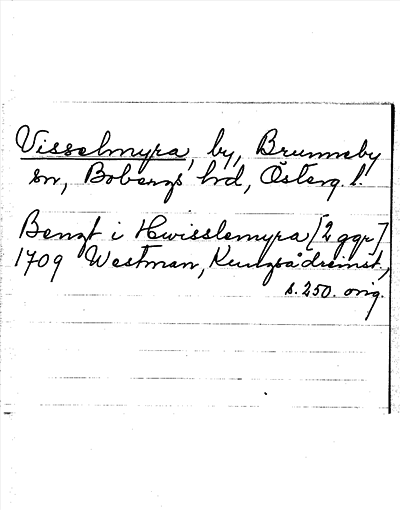 Visselmyra, by, Brunneby
sn, Bobergs hrd, Österg. l.
Bengt i Hwisslemyra [2 ggr]
1709 Westman, Kungsådreinst.,
s. 250. orig.